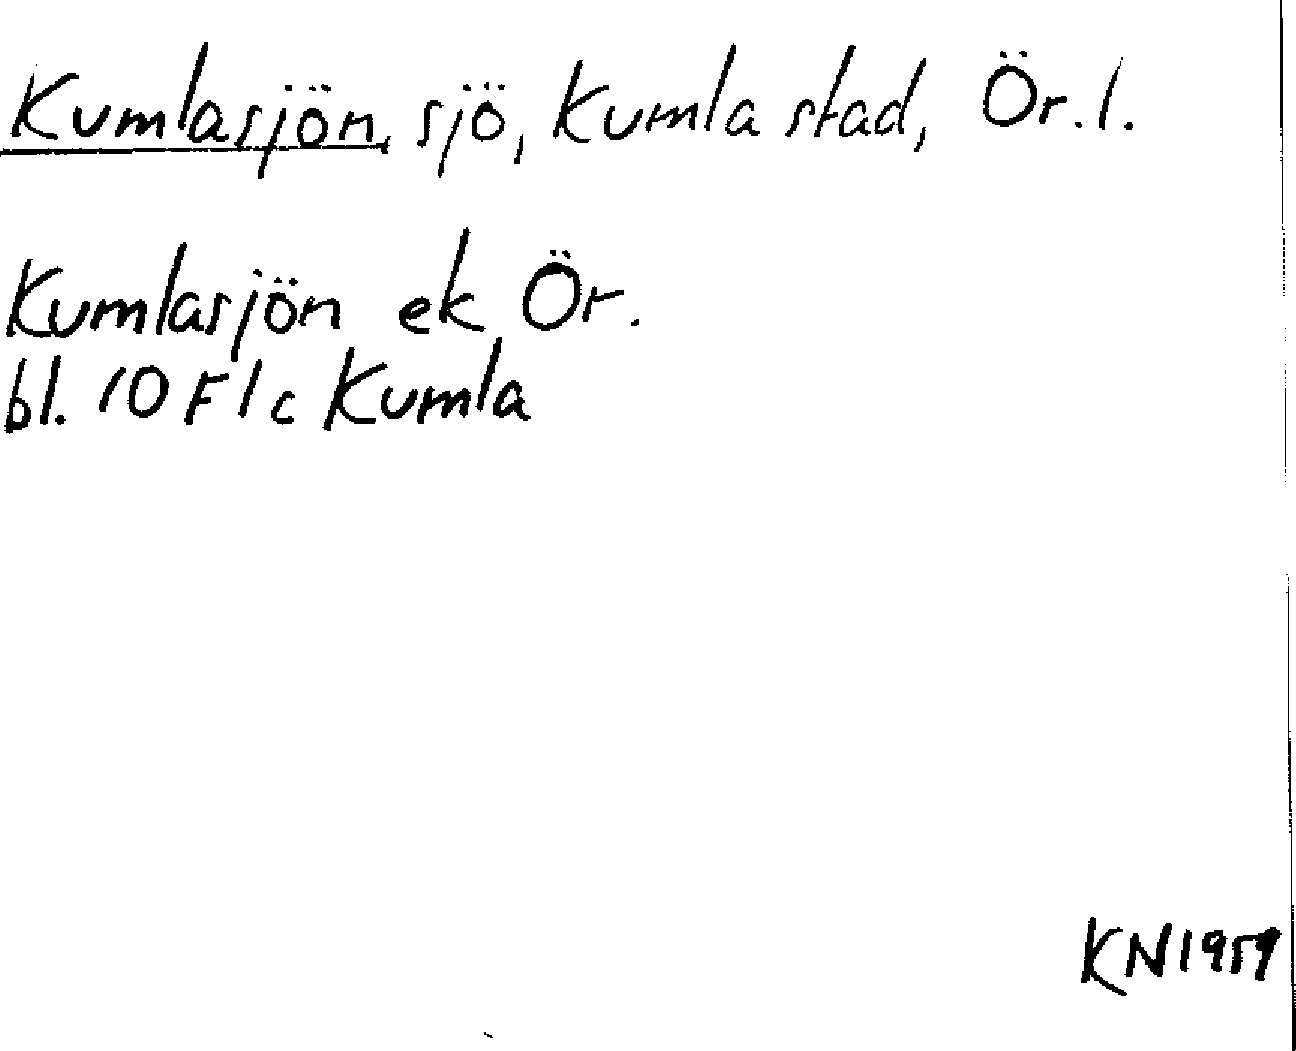 Kumlasjön, sjö, Kumla stad, Ör. l.
Kumlasjön ek Ör.
bl. 10 F 1 c Kumla
KN 1959